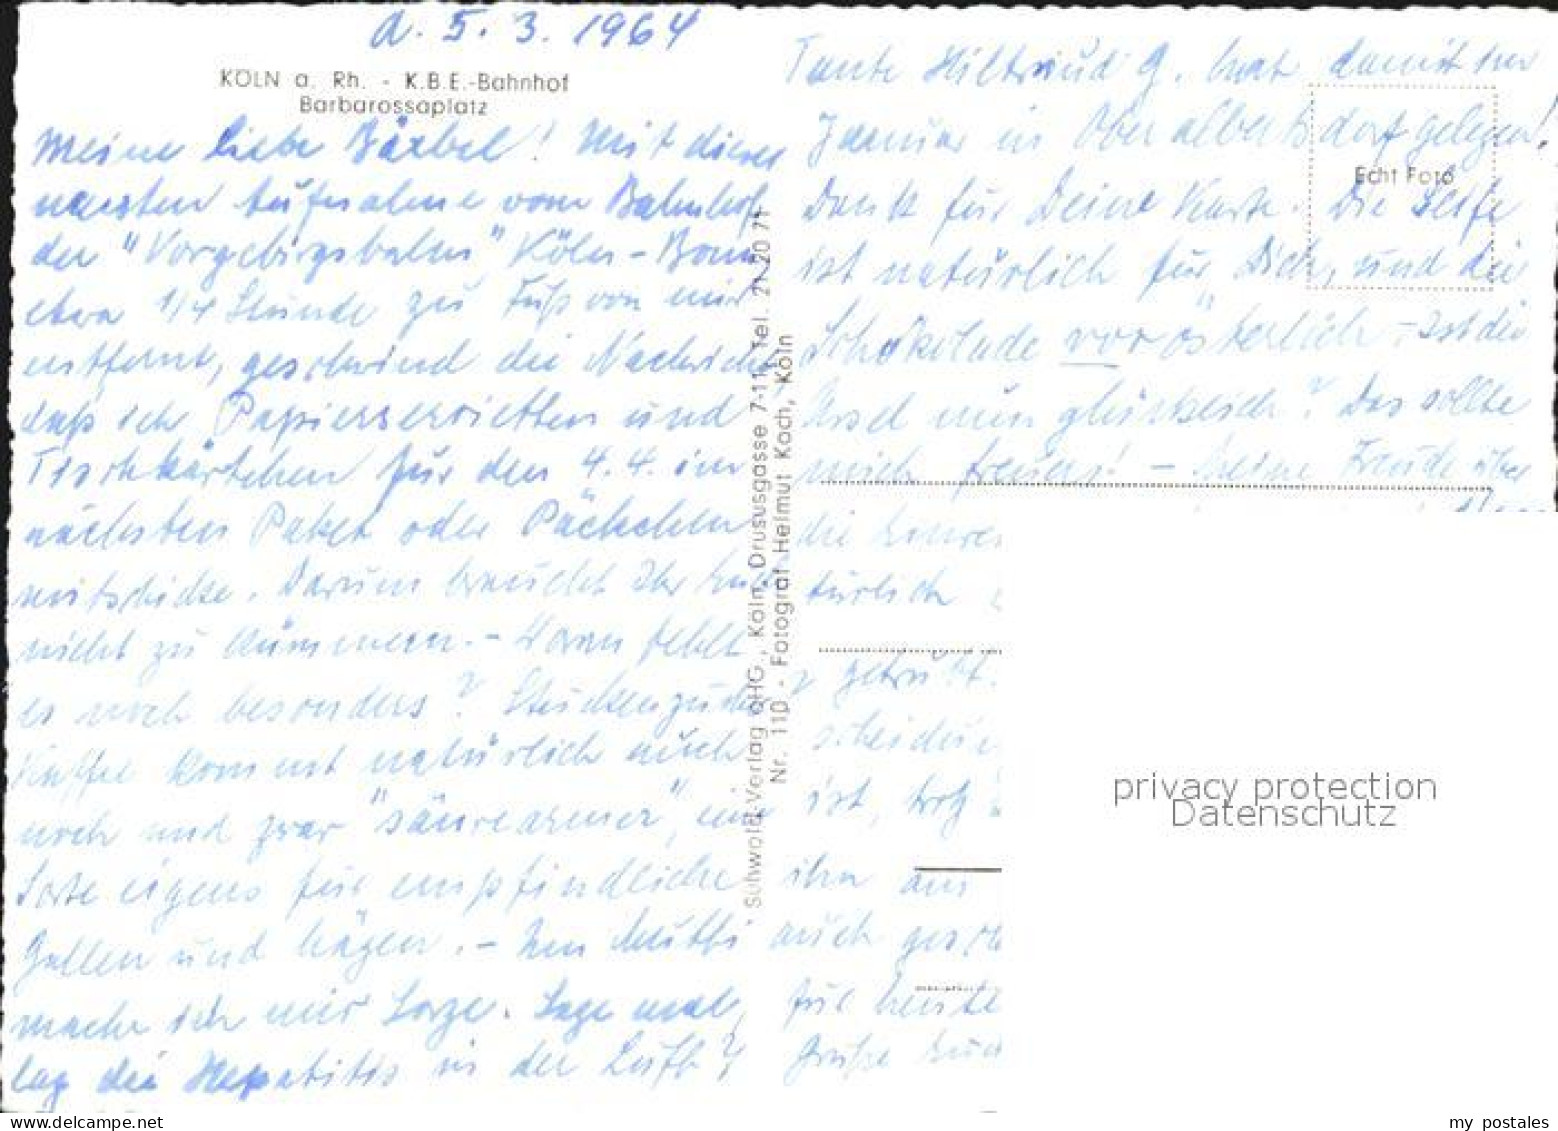 d. 5. 3. 1964
KÖLN a. Rh. - K.B.E.-Bahnhof
Barbarossaplatz
Meine liebe Bärbel! Mit dieser
neusten Aufnahme vom Bahnhof
der "Vorgebirgsbahn" Köln-Bonn
etwa 1/4 Stunde zu Fuß von mir
entfernt, geschwind die Nachricht
daß ich Papierservietten und
Tischkärtchen für den 4.4. im
nächsten Paket oder Päckchen
mitschicke. Darum braucht Ihr Euch
nicht zu kümmern. - Woran fehlt
es noch besonders?
Kaffee kommt natürlich auch
noch und zwar "säurearmer", eine
Sorte eigens für empfindliche
Gallen und Mägen. - Um Mutti
mache ich mir Sorge. Sage mal,
lag die Hepatitis in der Luft?
Suhwold-Verlag oHG., Köln, Drususgasse 7-11, Tel. 21 20 71
Nr. 110 - Fotograf Helmut Koch, Köln
Tante Hiltrud G. hat damit im
Januar in Oberalbertsdorf gelegen!
Echt Foto
Dank für Deine Karte. Die Seife
ist natürlich für Dich, und die
Schokolade vorösterlich. - Ist die
Ursel nun glücklich? Das sollte
mich freuen! - Meine Freude über
die
türlich
getrübt.
ist, trotz
ihn aus
auch
für heute
Grüße Euch
privacy protection
Datenschutz
my postales
www.delcampe.net